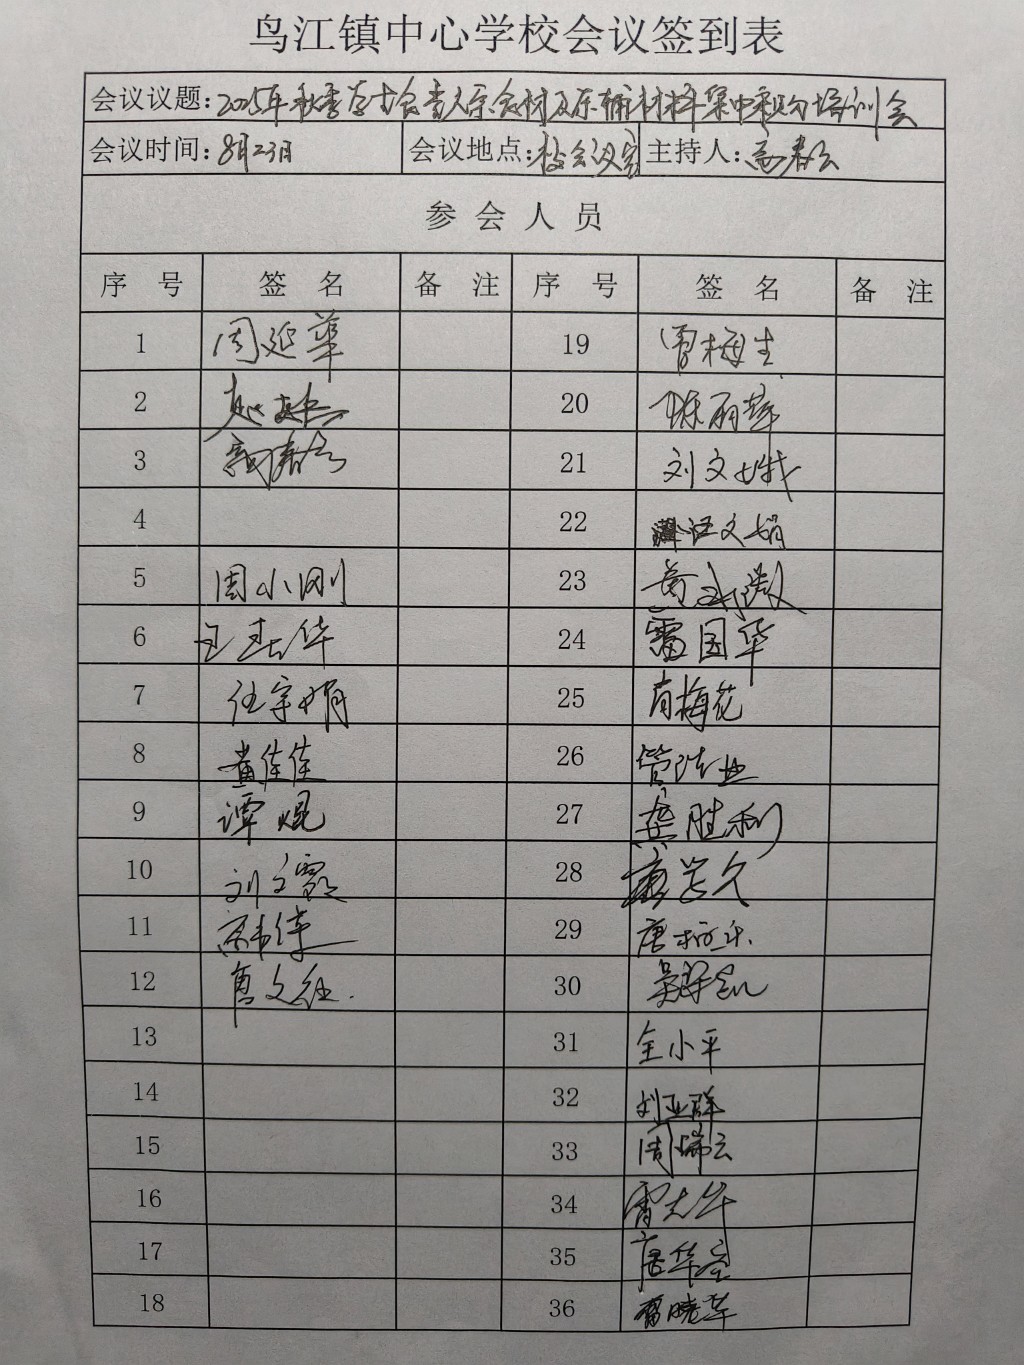 乌江镇中心学校会议签到表
会议议题：2025年秋季 大宗食材及原辅材料集中采购培训会
会议时间：8月23日 会议地点：校会议室 主持人：高春云
参会人员
序号 签名 备注 序号 签名 备注
1 周延华 19 曾梅生
2 20 陈丽萍
3 高春云 21 刘文娥
4 22 汪文娟
5 周小刚 23
6 王春华 24 雷国华
7 任宇娟 25 肖梅花
8 黄佳佳 26 管
9 谭焜 27 龚胜利
10 刘文霞 28
11 29 唐
12 30
13 31 全小平
14 32 刘亚群
15 33 周瑞云
16 34
17 35 唐华
18 36 曾晓萍